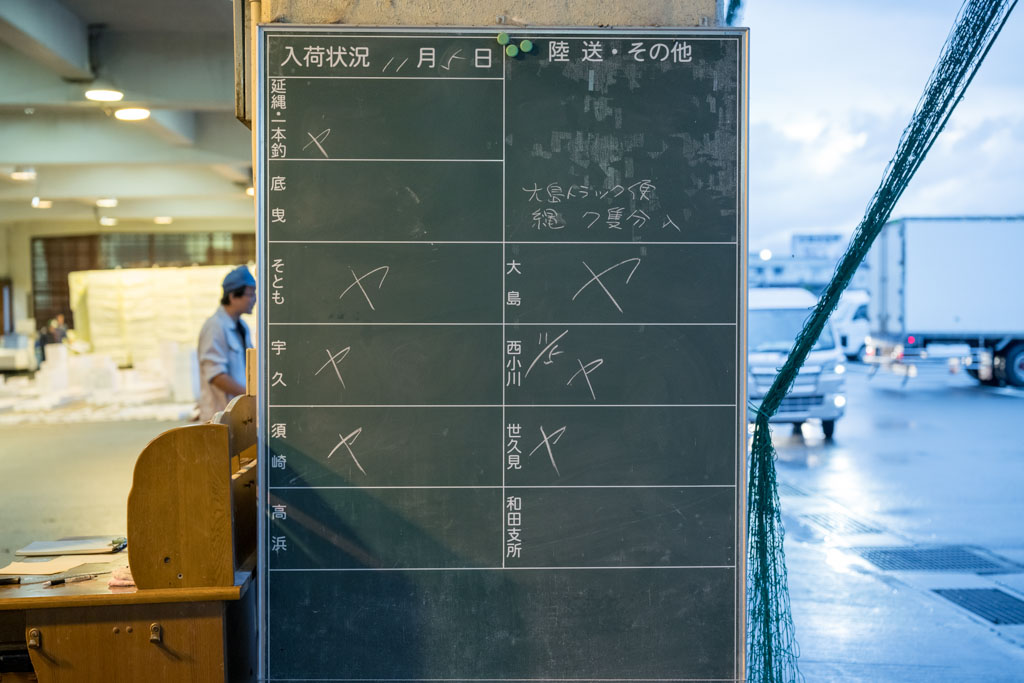 入荷状況 11月5日
陸送・その他
延縄・一本釣 ヤ
底曳
大島トラック便
縄 7隻分入
そとも ヤ
大島 ヤ
宇久 ヤ
西小川 11/5 ヤ
須崎 ヤ
世久見 ヤ
高浜
和田支所